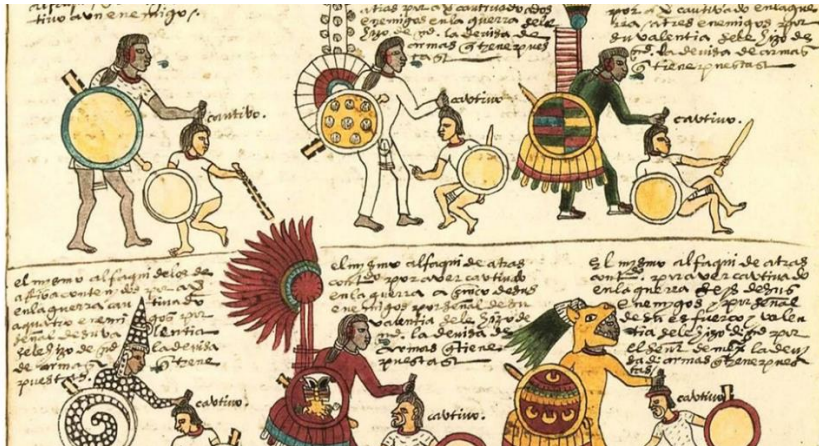 tivo a un enemigo.
cautivo.
atras por aver cautivado dos
enemigos en la guerra sele
hizo de md. la devisa de
armas q tiene pues
tas
cautivo
por a v cautivado en la gue
rra, a tres enemigos y por
su valentia sele hizo de
md. la devisa de armas
q tiene puestas
cautivo.
el mismo alfaqui de los de
atras contenidos por av
en la guerra cautivado
a quatro enemigos por
señal de su valentia
sele hizo de md la devisa
de armas q tiene
puestas
cautivo.
el mismo alfaqui de atras
contdo por aver cautivado
en la guerra a cinco de sus
enemigos por señal de su
valentia sele hizo de
md. la devisa de
armas q tiene
puestas
cautivo.
El mismo alfaqui de atras
contdo. por aver cautivado
en la guerra seys de sus
enemygos y por señal
de su esfuerço y valen
tia sele hizo de md por
el señor de la devi
sa de armas q tiene pues
tas
cautivo